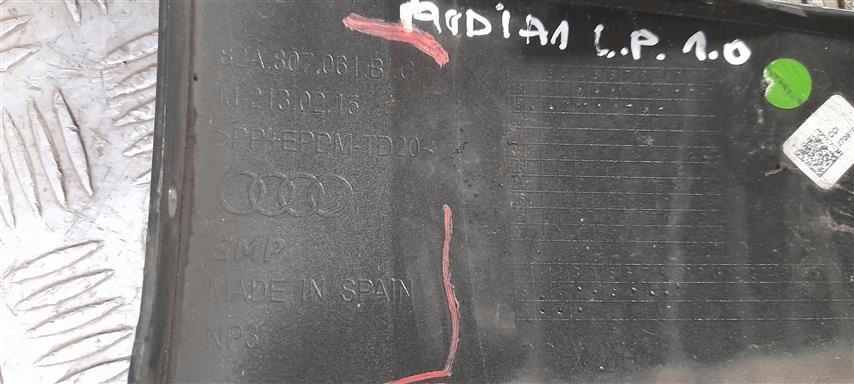 AUDI A1 L.P. 1.0
82A.807.061.B
M 213.02.15
>PP+EPDM-TD20<
SMP
MADE IN SPAIN
NP3